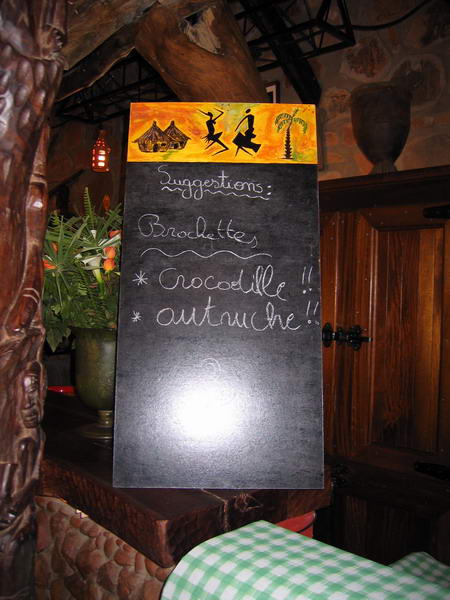 Suggestions:
Brochettes
* Crocodille !!
* autruche !!